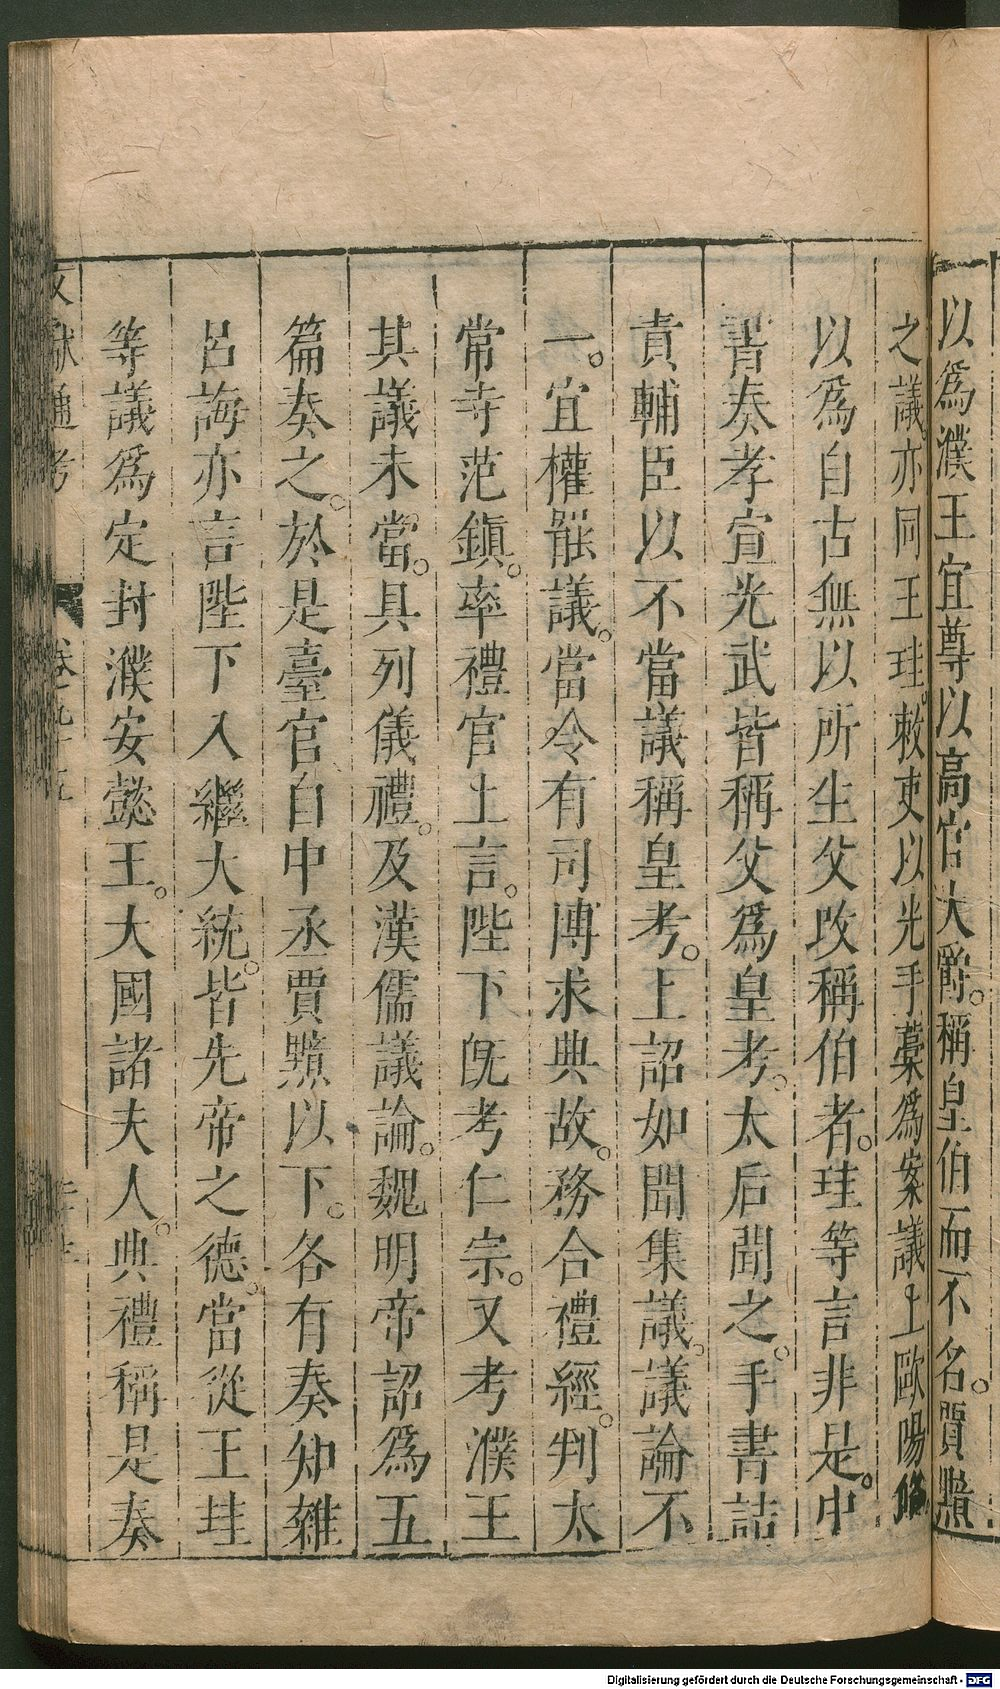 以爲濮王宜尊以高官大爵。稱皇伯而不名。賈黯
之議。亦同王珪。敕吏以光手藁爲案議上歐陽修
以爲自古無以所生父改稱伯者。珪等言非是。中
書奏孝宣光武皆稱父爲皇考。太后聞之。手書詰
責輔臣以不當議稱皇考。上詔如聞集議。議論不
一。宜權罷議。當令有司博求典故。務合禮經。判太
常寺范鎭。率禮官上言。陛下旣考仁宗。又考濮王
其議未當。具列儀禮。及漢儒議論。魏明帝詔爲五
篇奏之。於是臺官自中丞賈黯以下。各有奏知雜
呂誨亦言陛下入繼大統。皆先帝之德。當從王珪
等議爲定封濮安懿王。大國諸夫人。典禮稱是奏
文獻通考 卷九十五
Digitalisierung gefördert durch die Deutsche Forschungsgemeinschaft - DFG